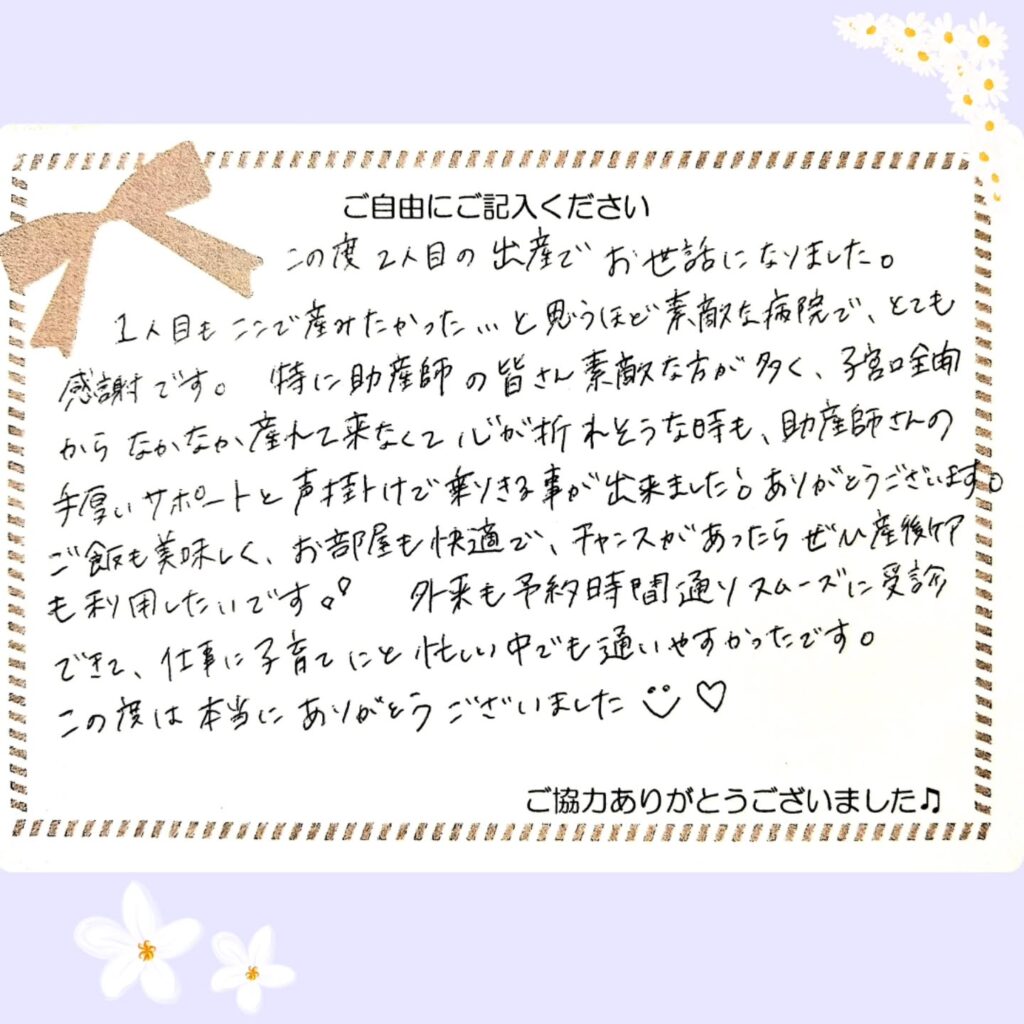 ご自由にご記入ください
この度2人目の出産でお世話になりました。
1人目もここで産みたかった…と思うほど素敵な病院で、とても
感謝です。 特に助産師の皆さん素敵な方が多く、子宮口全開
からなかなか産れて来なくて心が折れそうな時も、助産師さんの
手厚いサポートと声掛けで乗りきる事が出来ました。ありがとうございます。
ご飯も美味しく、お部屋も快適で、チャンスがあったらぜひ産後ケア
も利用したいです。 外来も予約時間通りスムーズに受診
できて、仕事に子育てにと忙しい中でも通いやすかったです。
この度は本当にありがとうございました
ご協力ありがとうございました♫